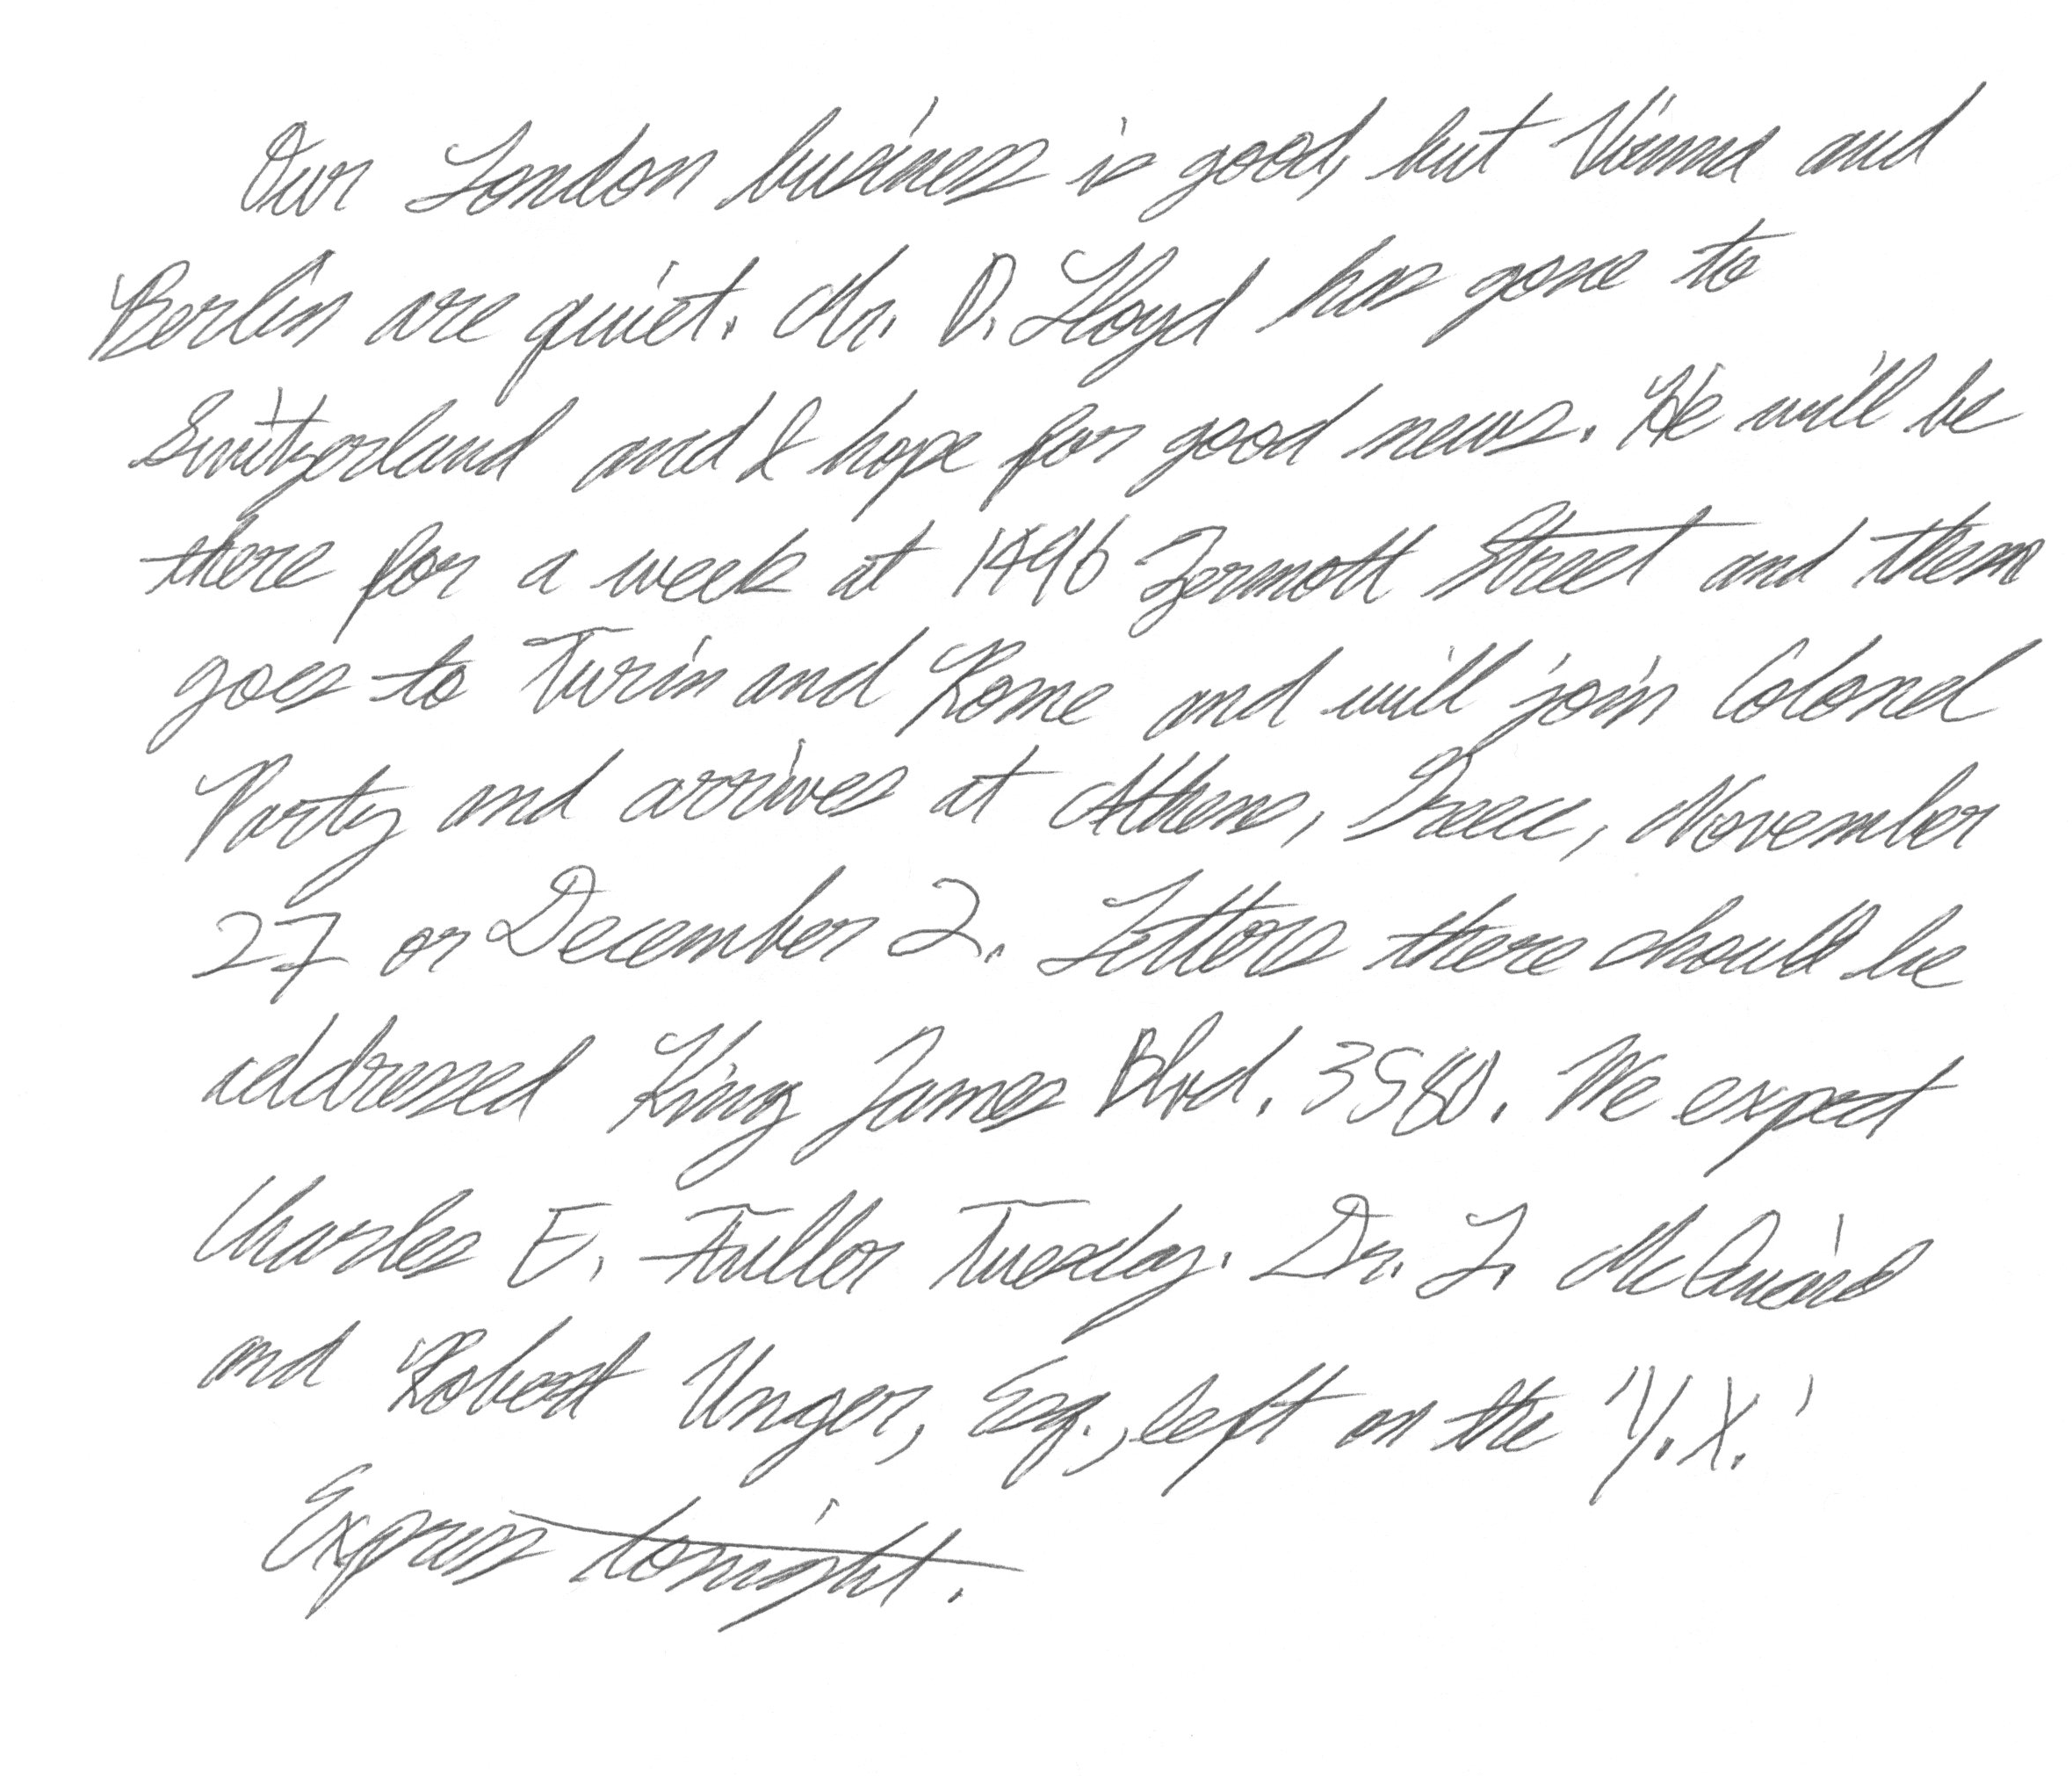 Our London business is good, but Vienna and
Berlin are quiet. Mr. D. Lloyd has gone to
Switzerland and I hope for good news. He will be
there for a week at 1496 Zermott Street and then
goes to Turin and Rome and will join Colonel
Party and arrives at Athens, Greece, November
27 or December 2. Letters there should be
addressed King James Blvd. 3580. We expect
Charles E. Fuller Tuesday. Dr. L. McQuaid
and Robert Unger, Esq., left on the 'Y.X.'
Express tonight.